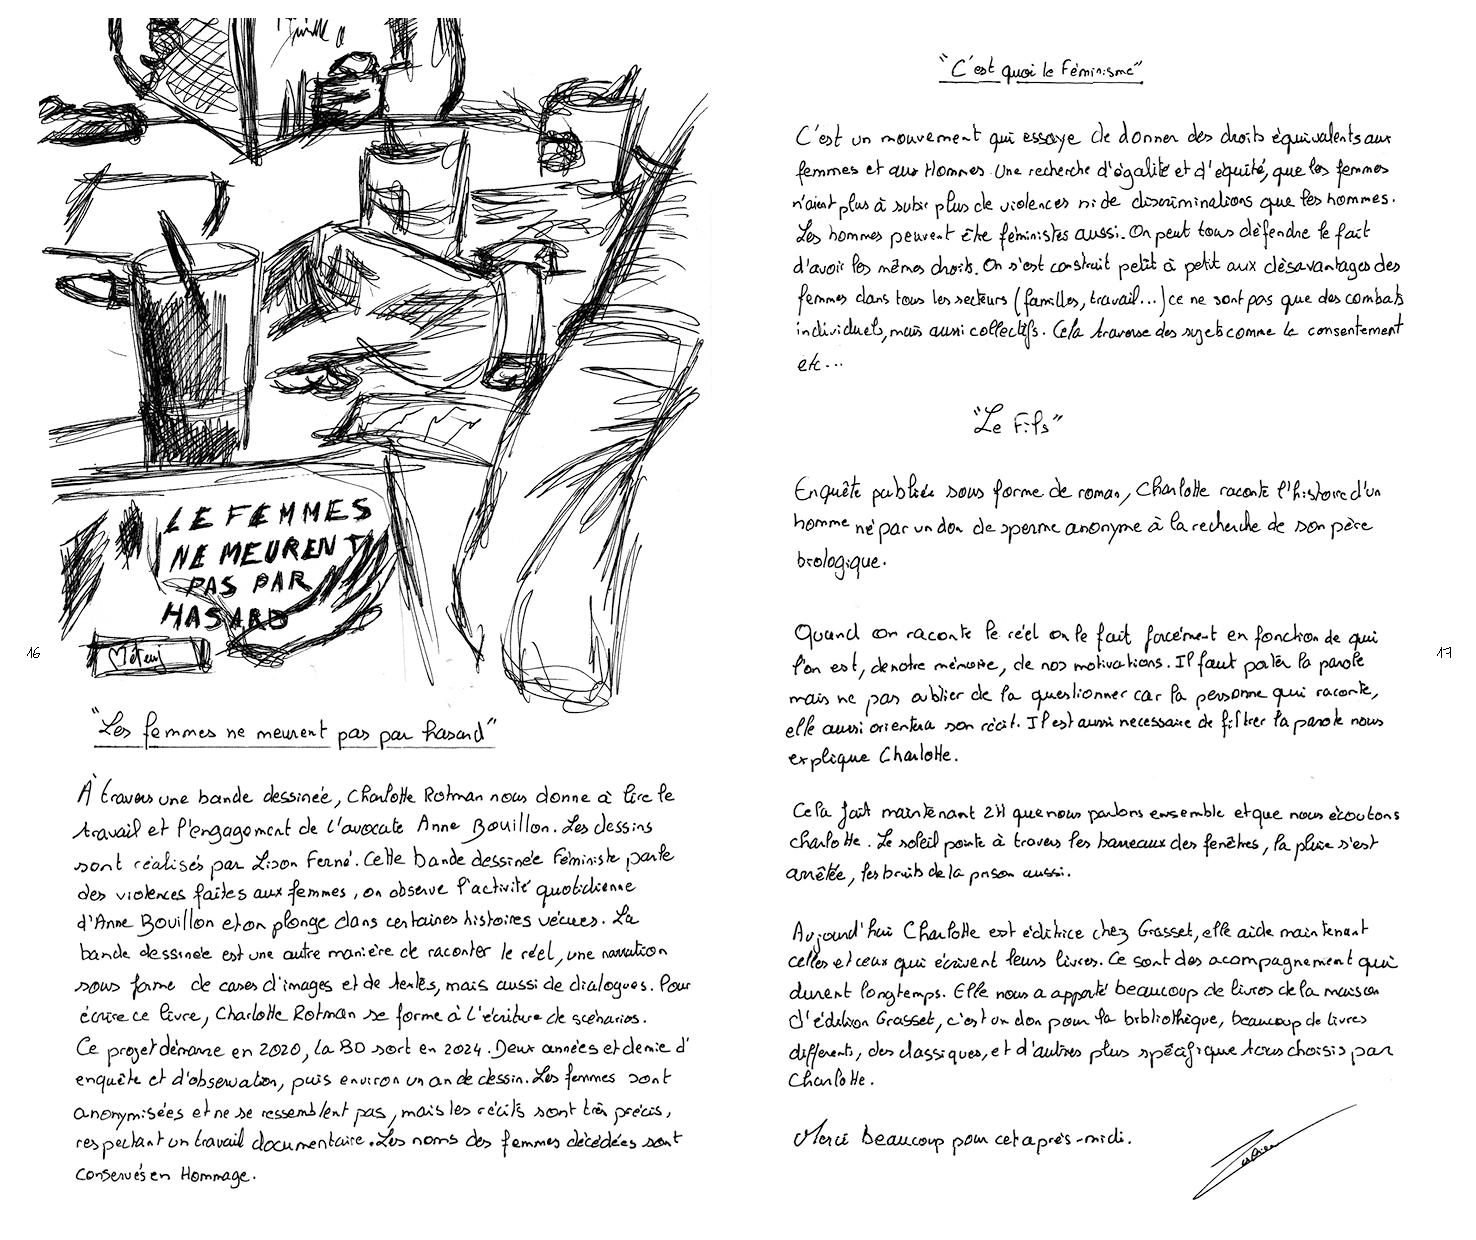 LE FEMMES
NE MEURENT
PAS PAR
HASARD
16
"Les femmes ne meurent pas par hasard"
À travers une bande dessinée, Charlotte Rotman nous donne à lire le
travail et l'engagement de l'avocate Anne Bouillon. Les dessins
sont réalisés par Lison Ferné. Cette bande dessinée féministe parle
des violences faites aux femmes, on observe l'activité quotidienne
d'Anne Bouillon et on plonge dans certaines histoires vécues. La
bande dessinée est une autre manière de raconter le réel, une narration
sous forme de cases d'images et de textes, mais aussi de dialogues. Pour
écrire ce livre, Charlotte Rotman se forme à l'écriture de scénarios.
Ce projet démarre en 2020, la BD sort en 2024. Deux années et demie d'
enquête et d'observation, puis environ un an de dessin. Les femmes sont
anonymisées et ne se ressemblent pas, mais les récits sont très précis,
respectant un travail documentaire. Les noms des femmes décédées sont
conservés en Hommage.
"C'est quoi le Féminisme"
C'est un mouvement qui essaye de donner des droits équivalents aux
femmes et aux Hommes. Une recherche d'égalité et d'équité, que les femmes
n'aient plus à subir plus de violences ni de discriminations que les hommes.
Les hommes peuvent être féministes aussi. On peut tous défendre le fait
d'avoir les mêmes droits. On s'est construit petit à petit aux désavantages des
femmes dans tous les secteurs (familles, travail...) ce ne sont pas que des combats
individuels, mais aussi collectifs. Cela traverse des sujets comme le consentement
etc...
"Le Fils"
Enquête publiée sous forme de roman, Charlotte raconte l'histoire d'un
homme né par un don de sperme anonyme à la recherche de son père
biologique.
Quand on raconte le réel on le fait forcément en fonction de qui
l'on est, de notre mémoire, de nos motivations. Il faut porter la parole
mais ne pas oublier de la questionner car la personne qui raconte,
elle aussi orientera son récit. Il est aussi necessaire de filtrer la parole nous
explique Charlotte.
Cela fait maintenant 2H que nous parlons ensemble et que nous écoutons
charlotte. Le soleil pointe à travers les barreaux des fenêtres, la pluie s'est
arrêtée, les bruits de la prison aussi.
Aujourd'hui Charlotte est éditrice chez Grasset, elle aide maintenant
celles et ceux qui écrivent leurs livres. Ce sont des acompagnement qui
durent longtemps. Elle nous a apporté beaucoup de livres de la maison
d'édition Grasset, c'est un don pour la bibliothèque, beaucoup de livres
differents, des classiques, et d'autres plus spécifique tous choisis par
Charlotte.
Merci beaucoup pour cet après-midi.
17